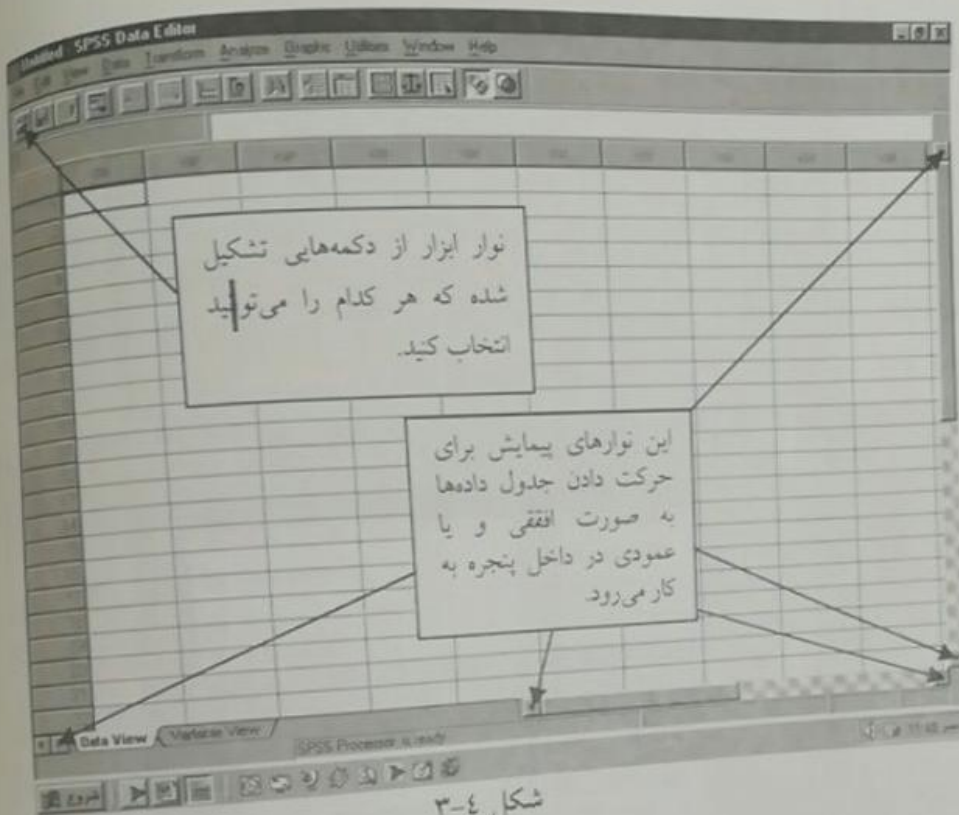 Untitled SPSS Data Editor
Edit View Data Transform Analyze Graphs Utilities Window Help
نوار ابزار از دکمه‌هایی تشکیل
شده که هر کدام را می‌توانید
انتخاب کنید.
این نوارهای پیمایش برای
حرکت دادن جدول داده‌ها
به صورت افققی و یا
عمودی در داخل پنجره به
کار می‌رود.
Data View Variable View
SPSS Processor is ready
شروع
شکل ٤-٣